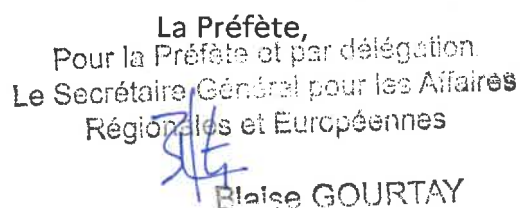 La Préfète,
Pour la Préfète et par délégation
Le Secrétaire Général pour les Affaires
Régionales et Européennes
Blaise GOURTAY